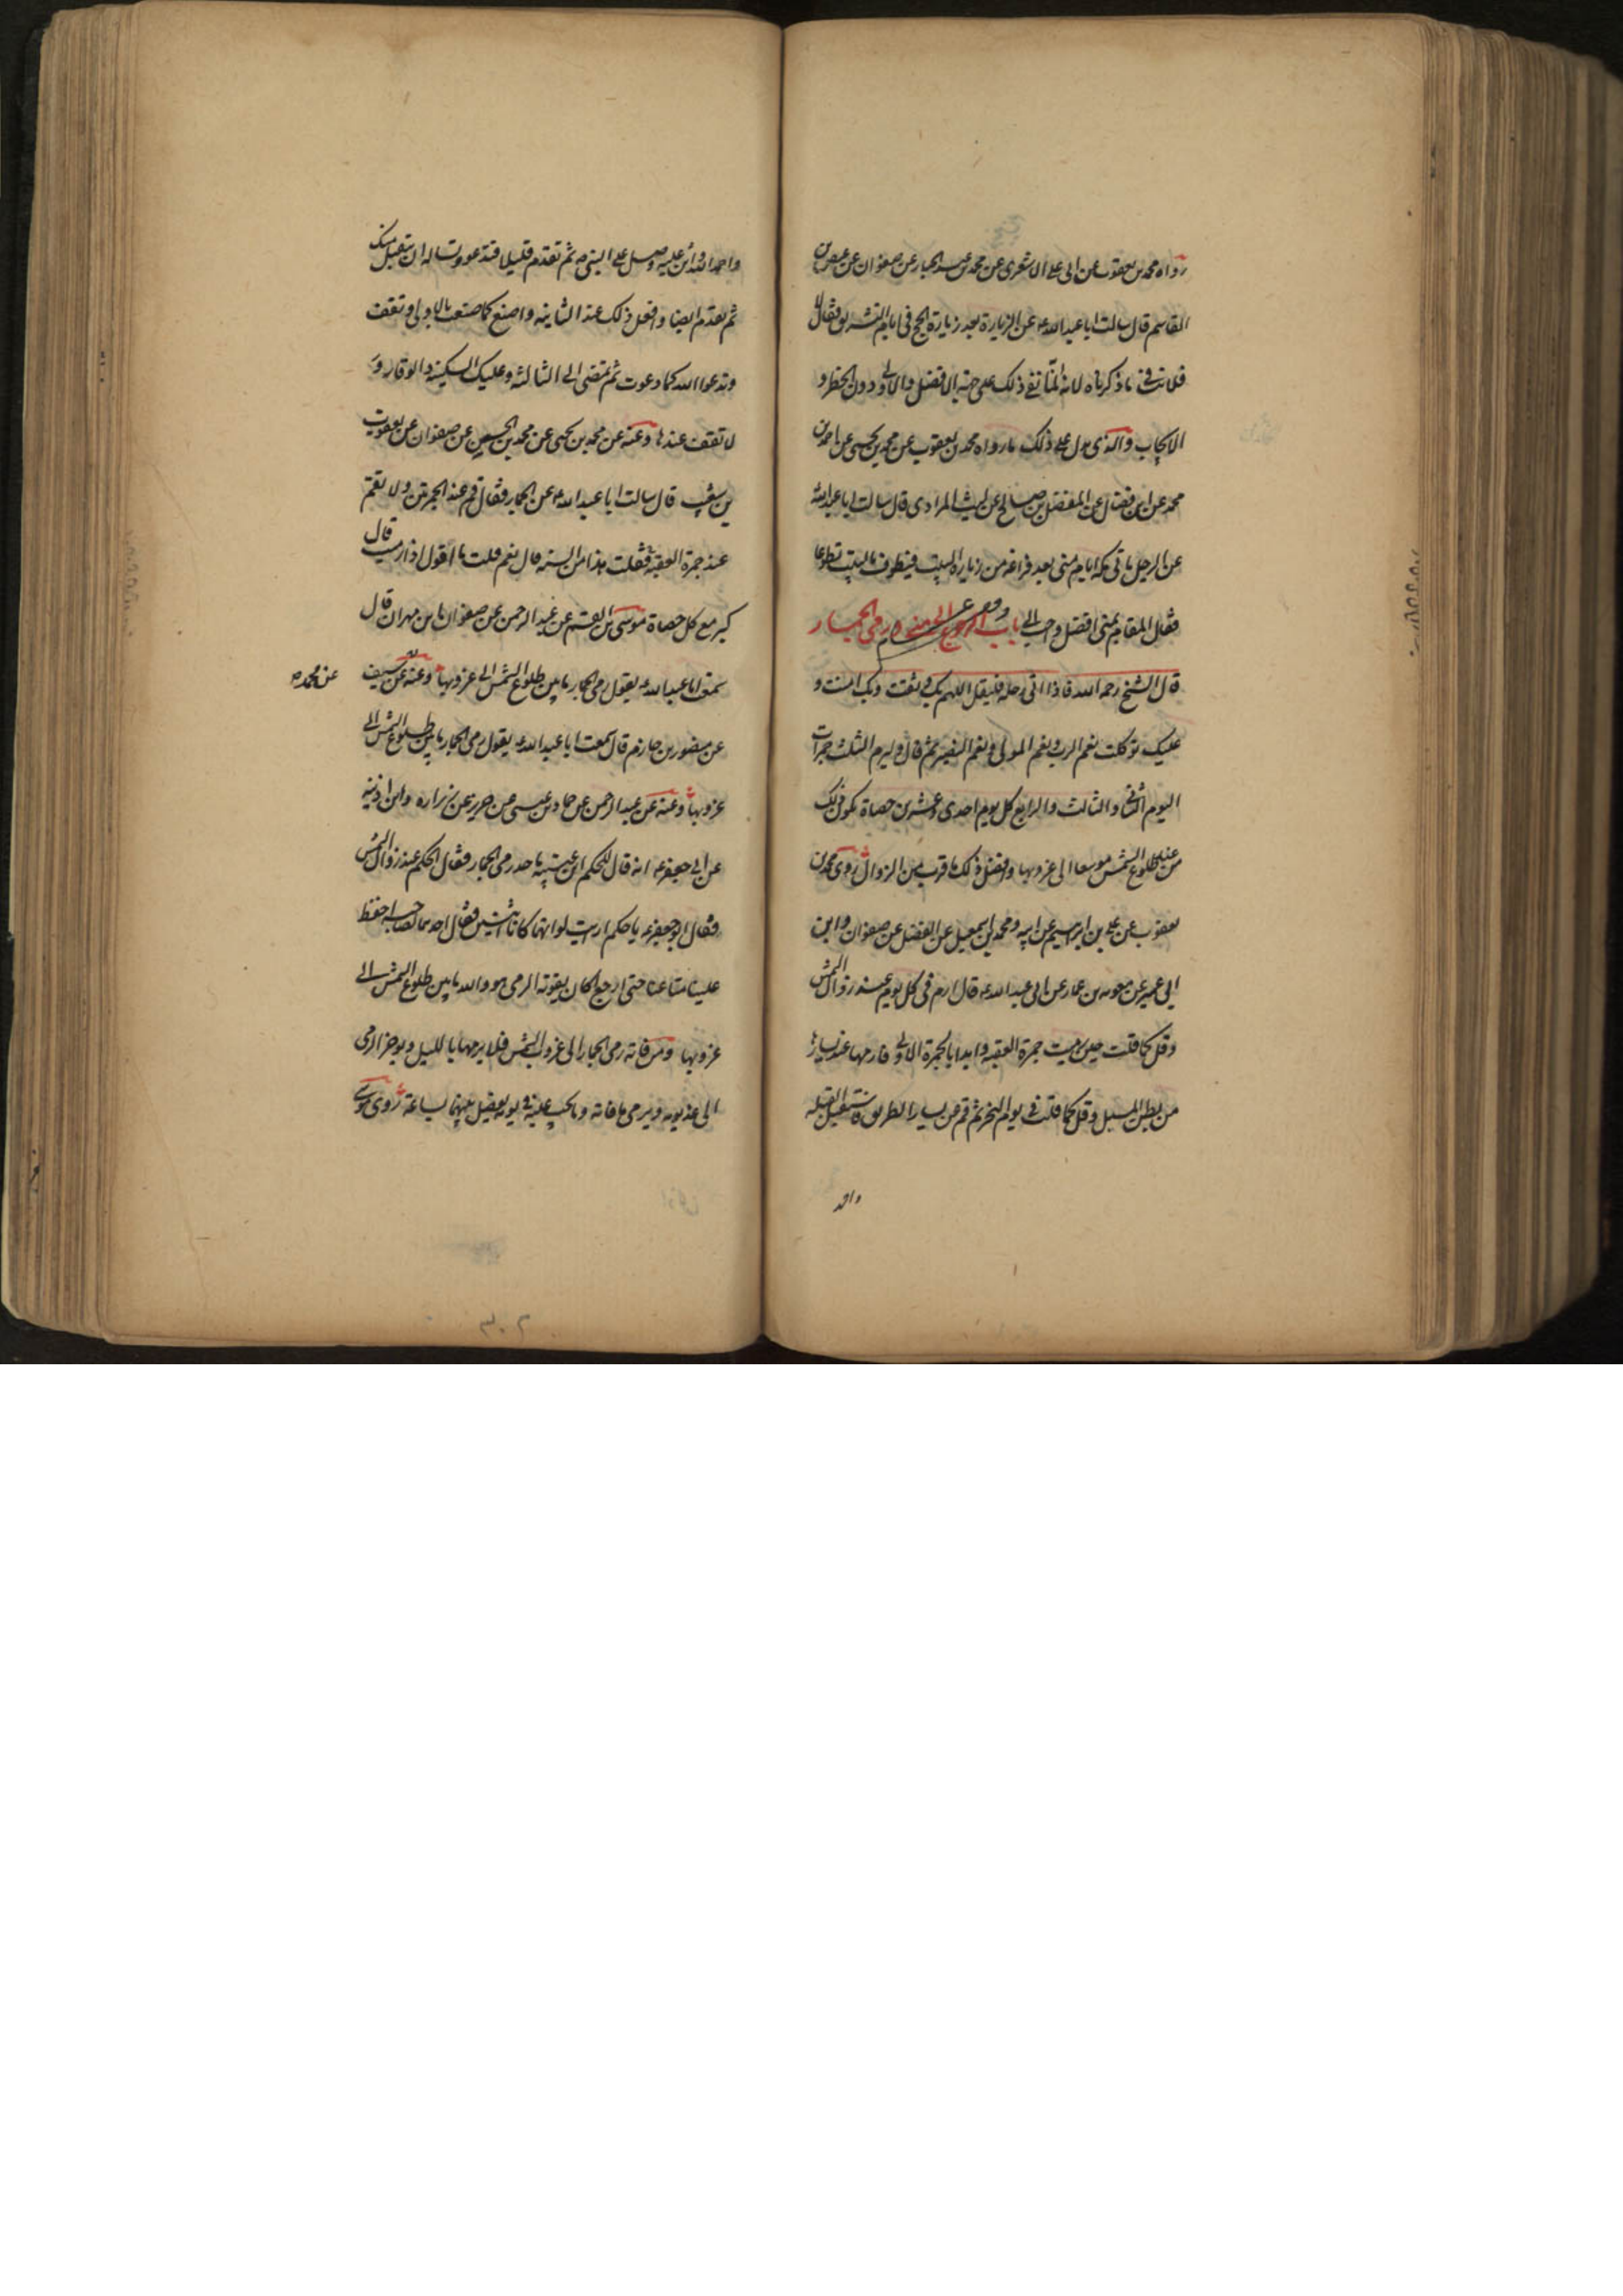 رواه محمد بن يعقوب عن ابى على الاشعرى عن محمد بن عبد الجبار عن صفوان عن عيص بن
القاسم قال سالت ابا عبد الله ع عن الزيارة بعد زيارة الحج فى ايام التشريق فقال لا
فلا ينافى ما ذكرناه لانه انما نفى ذلك على جهة الافضل والاولى دون الحظر و
الايجاب والذى يدل على ذلك ما رواه محمد بن يعقوب عن محمد بن يحيى عن احمد بن
محمد عن ابن فضال عن المفضل بن صالح عن ليث المرادى قال سالت ابا عبد الله
عن الرجل ياتى مكة ايام منى بعد فراغه من زيارة البيت فيطوف بالبيت تطوعا
فقال المقام بمنى افضل واحب الى باب الرجوع الى منى ورمى الجمار
قال الشيخ رحمه الله فاذا اتى رحله فليقل اللهم بك وثقت وبك امنت و
عليك توكلت نعم الرب ونعم المولى ونعم النصير ثم قال وليرم الثلث جمرات
اليوم الثانى والثالث والرابع كل يوم احدى وعشرين حصاة يكون ذلك
من عند طلوع الشمس موسعا الى غروبها وافضل ذلك ما قرب من الزوال روى محمد بن
يعقوب عن على بن ابرهيم عن ابيه ومحمد بن اسمعيل عن الفضل عن صفوان وابن
ابى عمير عن معوية بن عمار عن ابى عبد الله ع قال ارم فى كل يوم عند زوال الشمس
وقل كما قلت حين رميت جمرة العقبة وابدا بالجمرة الاولى فارمها عن يسارها
من بطن المسيل وقل كما قلت فى يوم النحر ثم قم عن يسار الطريق فاستقبل القبلة
واحمد
واحمد الله واثن عليه وصل على النبى ص ثم تقدم قليلا فتدعو وتساله ان يتقبل منك
ثم تقدم ايضا وافعل ذلك عند الثانية واصنع كما صنعت بالاولى وتقف
وتدعوا الله كما دعوت ثم تمضى الى الثالثة وعليك السكينة والوقار و
لا تقف عندها وعنه عن محمد بن يحيى عن محمد بن الحسين عن صفوان عن يعقوب
بن شعيب قال سالت ابا عبد الله ع عن الجمار فقال قم عند الجمرتين ولا تقم
عند جمرة العقبة فقلت هذا من السنة قال نعم قلت ما اقول اذا رميت قال
كبر مع كل حصاة موسى بن القسم عن عبد الرحمن عن صفوان بن مهران قال
سمعت ابا عبد الله ع يقول رمى الجمار ما بين طلوع الشمس الى غروبها وعنه عن سيف
عن محمد صح
عن منصور بن حازم قال سمعت ابا عبد الله ع يقول رمى الجمار ما بين طلوع الشمس الى
غروبها وعنه عن عبد الرحمن عن حماد بن عيسى عن حريز عن زرارة وابن اذينة
عن ابى جعفر ع انه قال للحكم بن عتيبة ما حد رمى الجمار فقال الحكم عند زوال الشمس
فقال ابو جعفر ع يا حكم ارايت لو انهما كانا اثنين فقال احدهما لصاحبه احفظ
علينا متاعنا حتى ارجع اكان يفوته الرمى هو والله ما بين طلوع الشمس الى
غروبها ومن فاته رمى الجمار الى غروب الشمس فلا يرمها بالليل ويوخر الرمى
الى غد يومه ويرمى ما فاته وما يجب عليه فى يومه يفصل بينهما بساعة روى موسى
٣٠٢